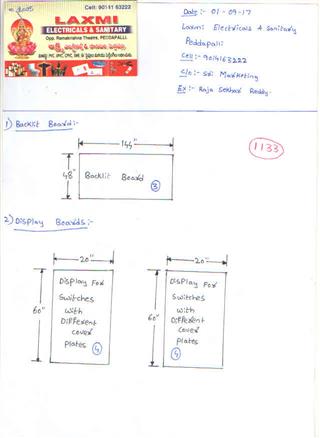 Cell: 90141 63222
LAXMI
ELECTRICALS & SANITARY
Opp. Ramakrishna Theatre, PEDDAPALLI.
Date:- 01-09-17
Laxmi Electricals & Sanitary
Peddapalli
Cell:- 9014163222
C/o:- Sri Marketing
Ex:- Raja Sekhar Reddy.
1) Backlit Board:-
1133
144"
48"
Backlit Board
3
2) Display Boards:-
20"
60"
Display For
Switches
with
Different
cover
plates
4
20"
60"
Display For
Switches
with
Different
cover
plates
4